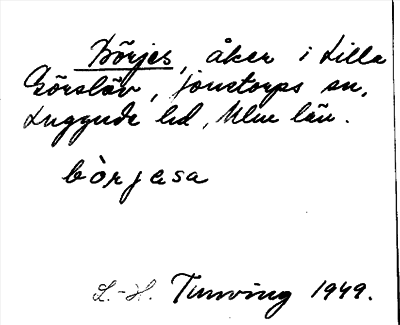 Börjes, åker i Lilla
Görslöv, Jonstorps sn,
Luggude hd, Mlm län.
bòrjəsa
L.-H. Tunving 1949.